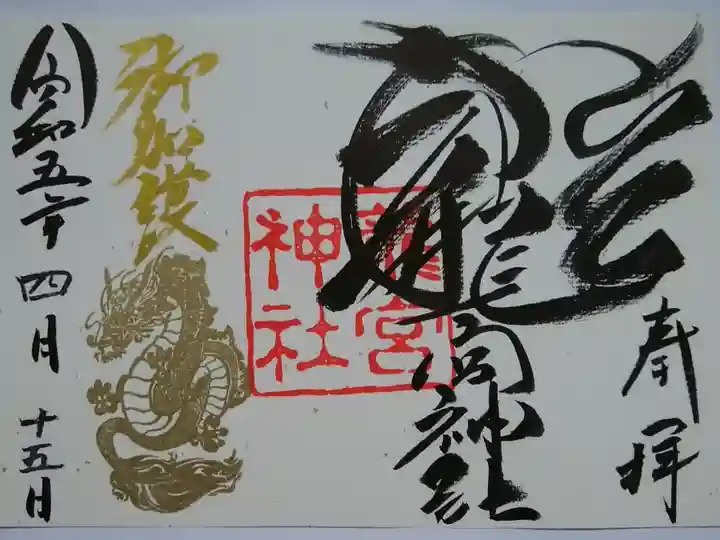 奉拝
龍宮神社
龍宮
神社
御加護
令和五年四月十五日